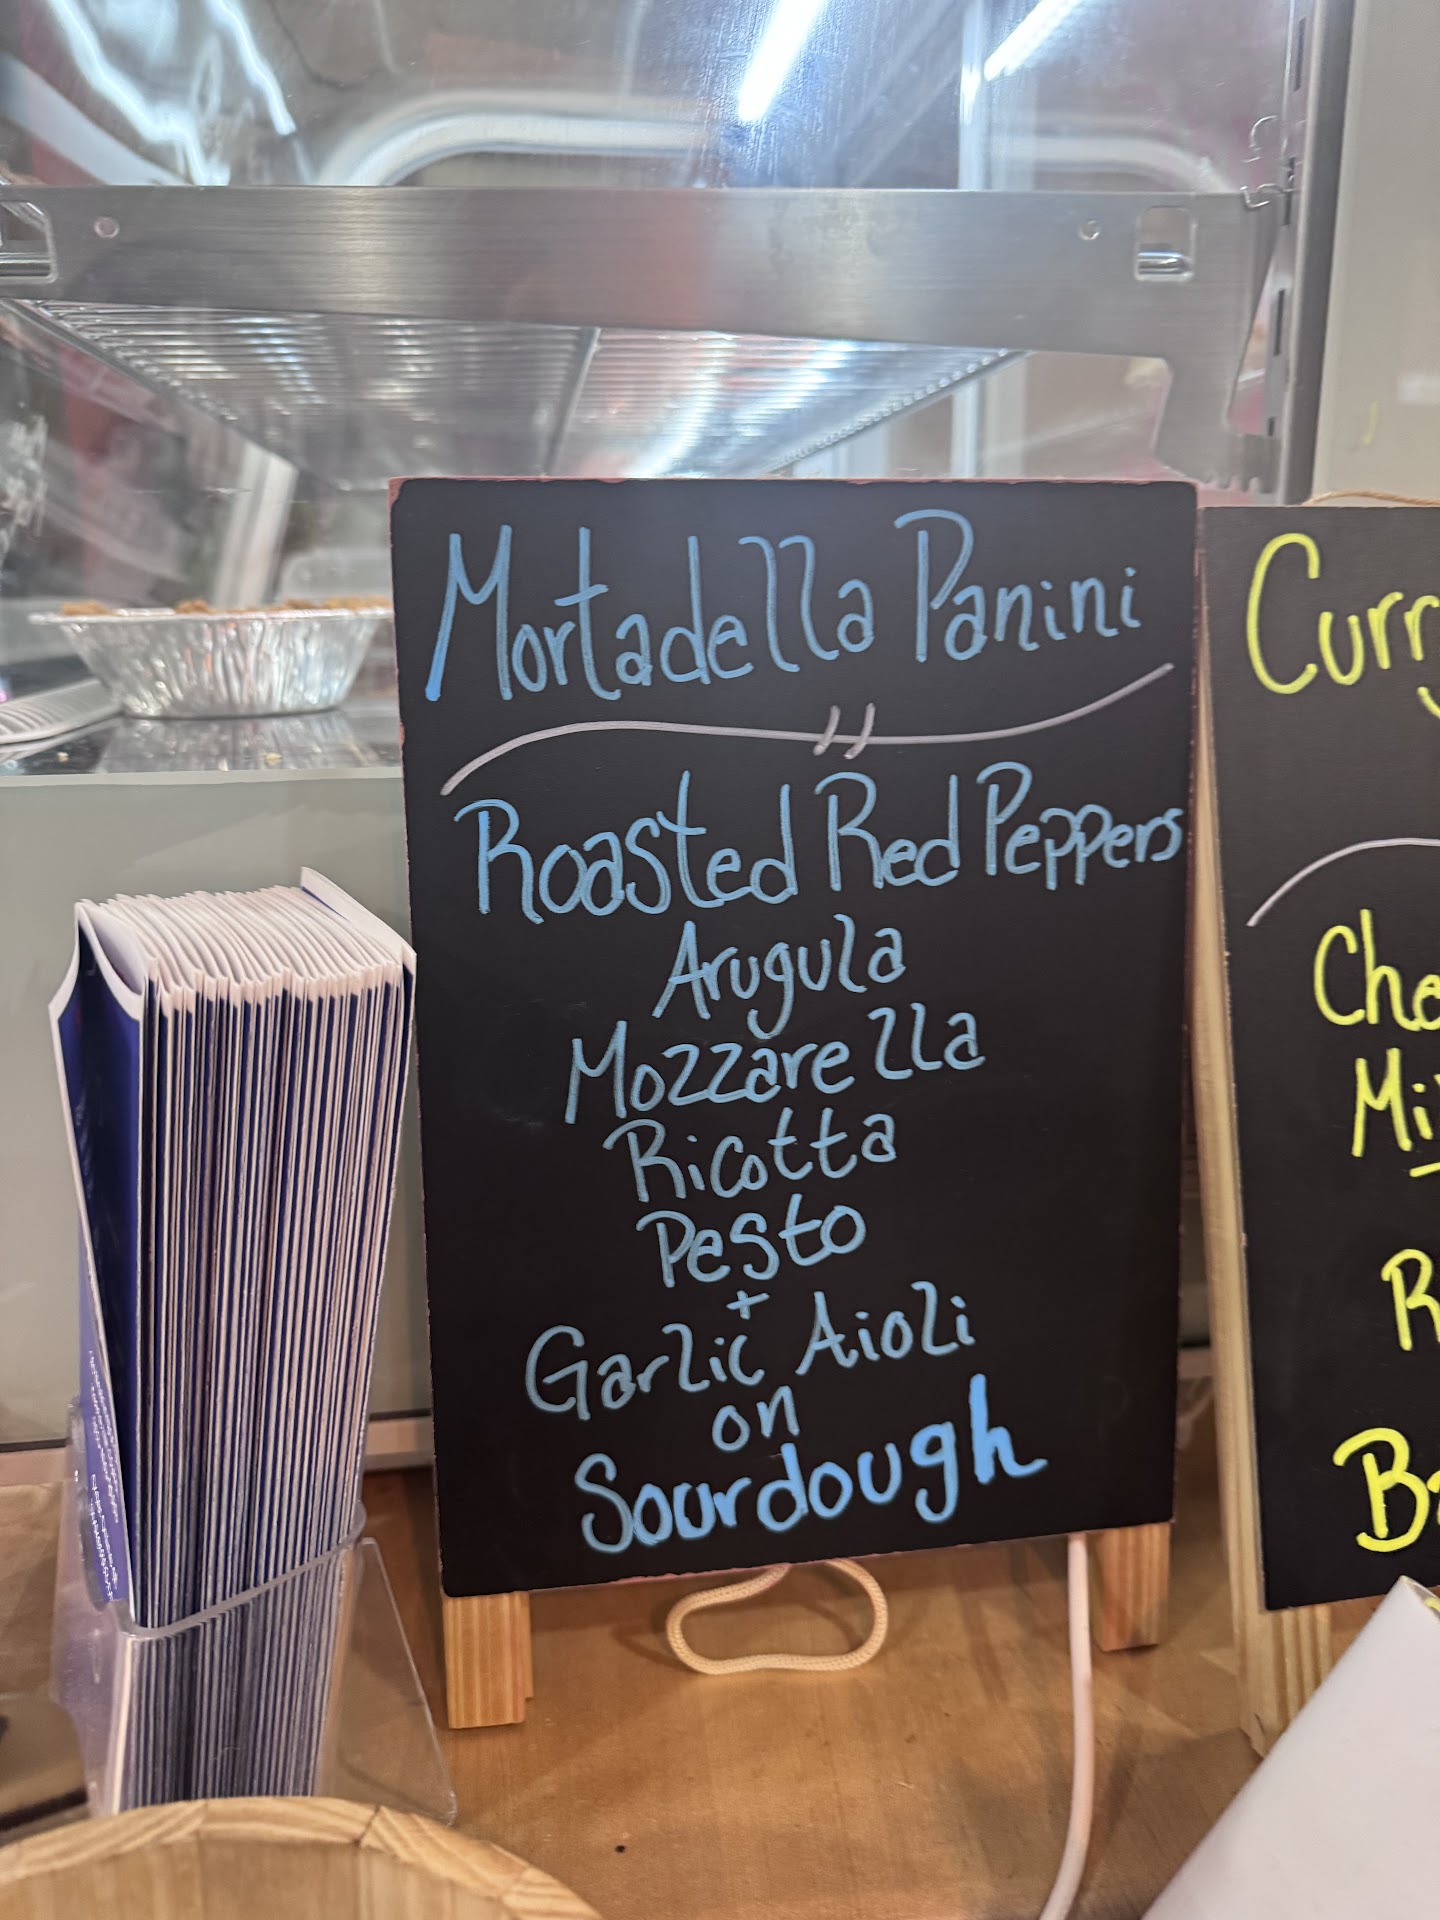 Mortadella Panini
Roasted Red Peppers
Arugula
Mozzarella
Ricotta
Pesto
+
Garlic Aioli
on
Sourdough
Curry